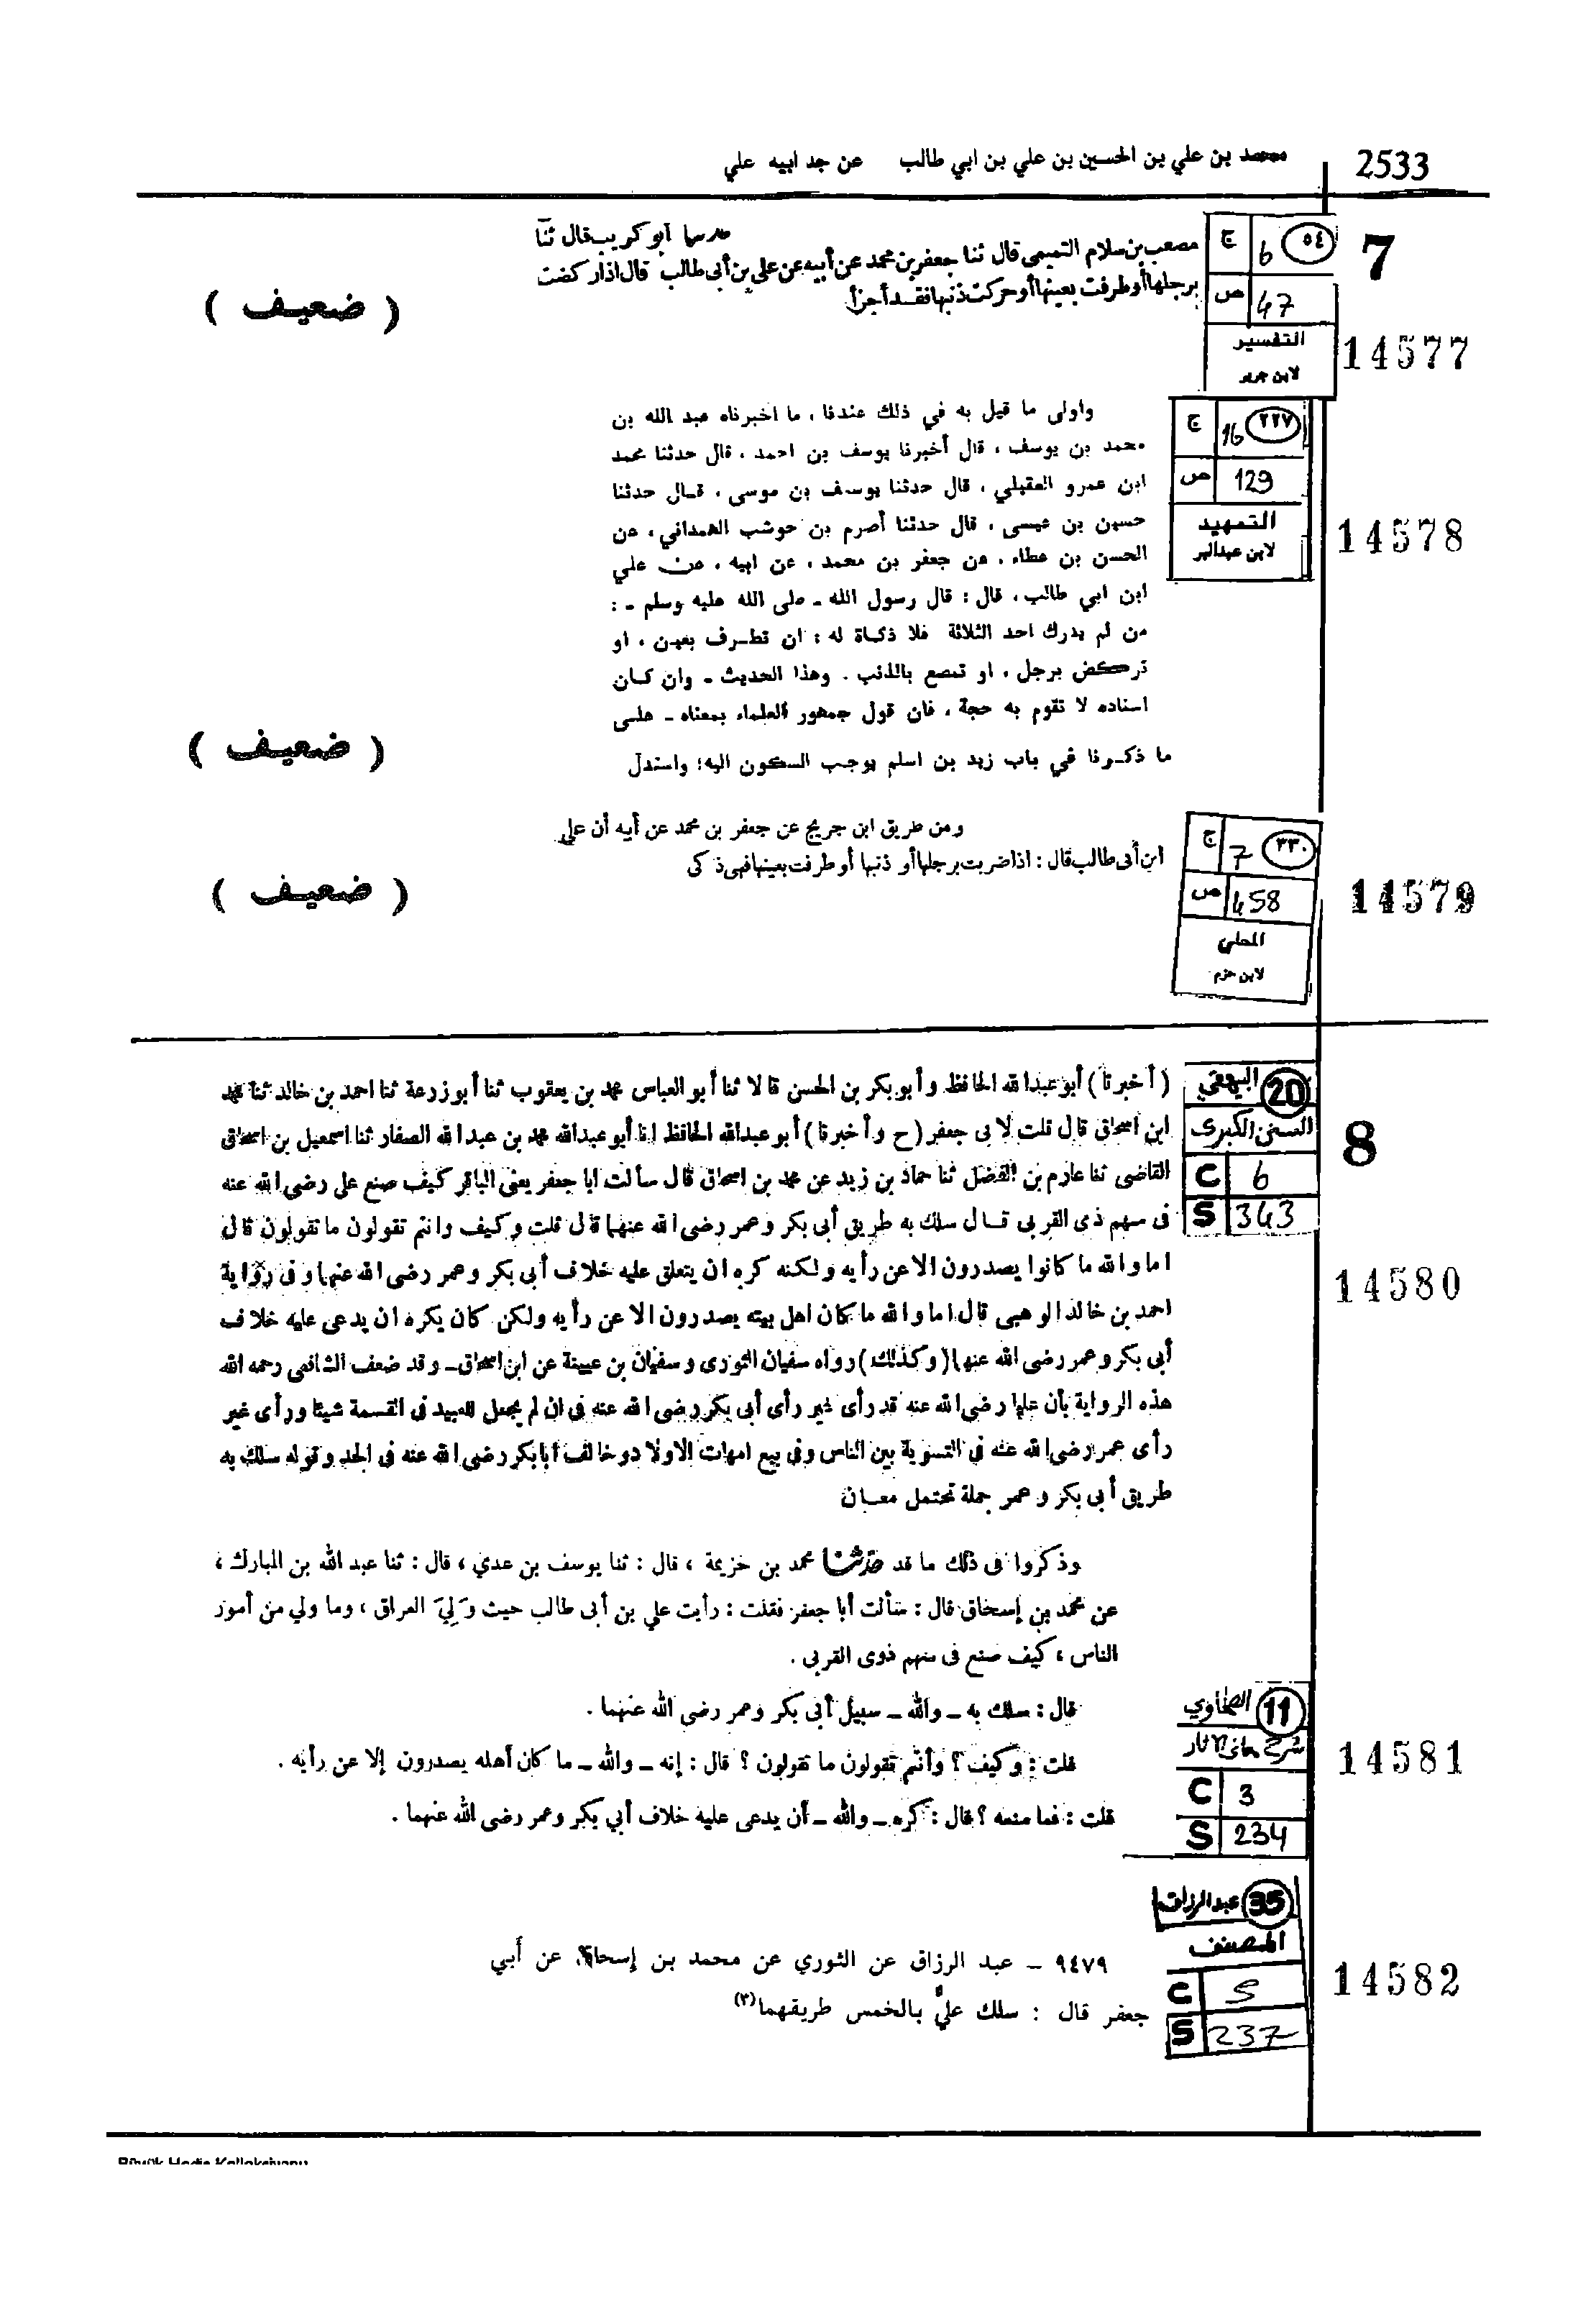 2533
محمد بن علي بن الحسين بن علي بن ابي طالب عن جد ابيه علي
7
٥٤ ج 6
ص 47
التفسير
لابن جرير
14577
حدثنا أبو كريب قال ثنا
مصعب بن سلام التميمى قال ثنا جعفر بن محمد عن أبيه عن على بن أبى طالب قال اذا ركضت
برجلها أو طرفت بعينها أو حركت ذنبها فقد أجزأ
( ضعيف )
٢٢٧ ج 16
ص 129
التمهيد
لابن عبدالبر
14578
واولى ما قيل به في ذلك عندنا ، ما اخبرناه عبد الله بن
محمد بن يوسف ، قال أخبرنا يوسف بن احمد ، قال حدثنا محمد
ابن عمرو العقيلي ، قال حدثنا يوسف بن موسى ، قال حدثنا
حسين بن عيسى ، قال حدثنا أصرم بن حوشب الهمداني ، عن
الحسن بن عطاء ، عن جعفر بن محمد ، عن ابيه ، عن علي
ابن ابي طالب ، قال : قال رسول الله - صلى الله عليه وسلم - :
من لم يدرك احد الثلاثة فلا ذكاة له : ان تطرف بعين ، او
تركض برجل ، او تمصع بالذنب . وهذا الحديث - وان كان
اسناده لا تقوم به حجة ، فان قول جمهور العلماء بمعناه - على
ما ذكرنا في باب زيد بن اسلم يوجب السكون اليه؛ واستدل
( ضعيف )
٣٣٠ ج 7
ص 458
المحلى
لابن حزم
14579
ومن طريق ابن جريج عن جعفر بن محمد عن أبيه أن على
ابن أبى طالب قال : اذا ضربت برجلها أو ذنبها أو طرفت بعينها فهى ذكى
( ضعيف )
20 البيهقي
السنن الكبرى
C 6
S 343
8
14580
( أخبرنا ) أبو عبد الله الحافظ وأبو بكر بن الحسن قالا ثنا أبو العباس محمد بن يعقوب ثنا أبو زرعة ثنا احمد بن خالد ثنا محمد
ابن اسحاق قال قلت لابى جعفر ( ح وأخبرنا ) أبو عبد الله الحافظ انا أبو عبد الله محمد بن عبد الله الصفار ثنا اسمعيل بن اسحاق
القاضى ثنا عارم بن الفضل ثنا حماد بن زيد عن محمد بن اسحاق قال سألت ابا جعفر يعنى الباقر كيف صنع على رضى الله عنه
فى سهم ذى القربى قال سلك به طريق أبى بكر وعمر رضى الله عنهما قال قلت وكيف وانتم تقولون ما تقولون قال
اما والله ما كانوا يصدرون الا عن رأيه ولكنه كره ان يتعلق عليه خلاف أبى بكر وعمر رضى الله عنهما وفى رواية
احمد بن خالد الوهبى قال اما والله ما كان اهل بيته يصدرون الا عن رأيه ولكن كان يكره ان يدعى عليه خلاف
أبى بكر وعمر رضى الله عنهما ( وكذلك ) رواه سفيان الثورى وسفيان بن عيينة عن ابن اسحاق - وقد ضعف الشافعى رحمه الله
هذه الرواية بأن عليا رضى الله عنه قد رأى غير رأى أبى بكر رضى الله عنه فى ان لم يجعل للعبيد فى القسمة شيئا ورأى غير
رأى عمر رضى الله عنه فى التسوية بين الناس وفى بيع امهات الاولاد وخالف ابا بكر رضى الله عنه فى الجد وقوله سلك به
طريق أبى بكر وعمر جملة تحتمل معان
وذكروا فى ذلك ما قد حدثنا محمد بن خزيمة ، قال : ثنا يوسف بن عدي ، قال : ثنا عبد الله بن المبارك ،
عن محمد بن إسحاق قال : سألت أبا جعفر فقلت : رأيت علي بن أبى طالب حيث وَلِيَ العراق ، وما ولي من أمور
الناس ، كيف صنع فى سهم ذوى القربى .
قال : سلك به - والله - سبيل أبى بكر وعمر رضى الله عنهما .
قلت : وكيف ؟ وأنتم تقولون ما تقولون ؟ قال : إنه - والله - ما كان أهله يصدرون إلا عن رأيه .
قلت : فما منعه ؟ قال : كره - والله - أن يدعى عليه خلاف أبي بكر وعمر رضى الله عنهما .
11 الطحاوي
شرح معاني الاثار
C 3
S 234
14581
35 عبدالرزاق
المصنف
C 5
S 237
14582
٩٤٧٩ - عبد الرزاق عن الثوري عن محمد بن إسحاق عن أبي
جعفر قال : سلك عليٌّ بالخمس طريقهما(٣)
Büyük Hadis Kolleksiyonu